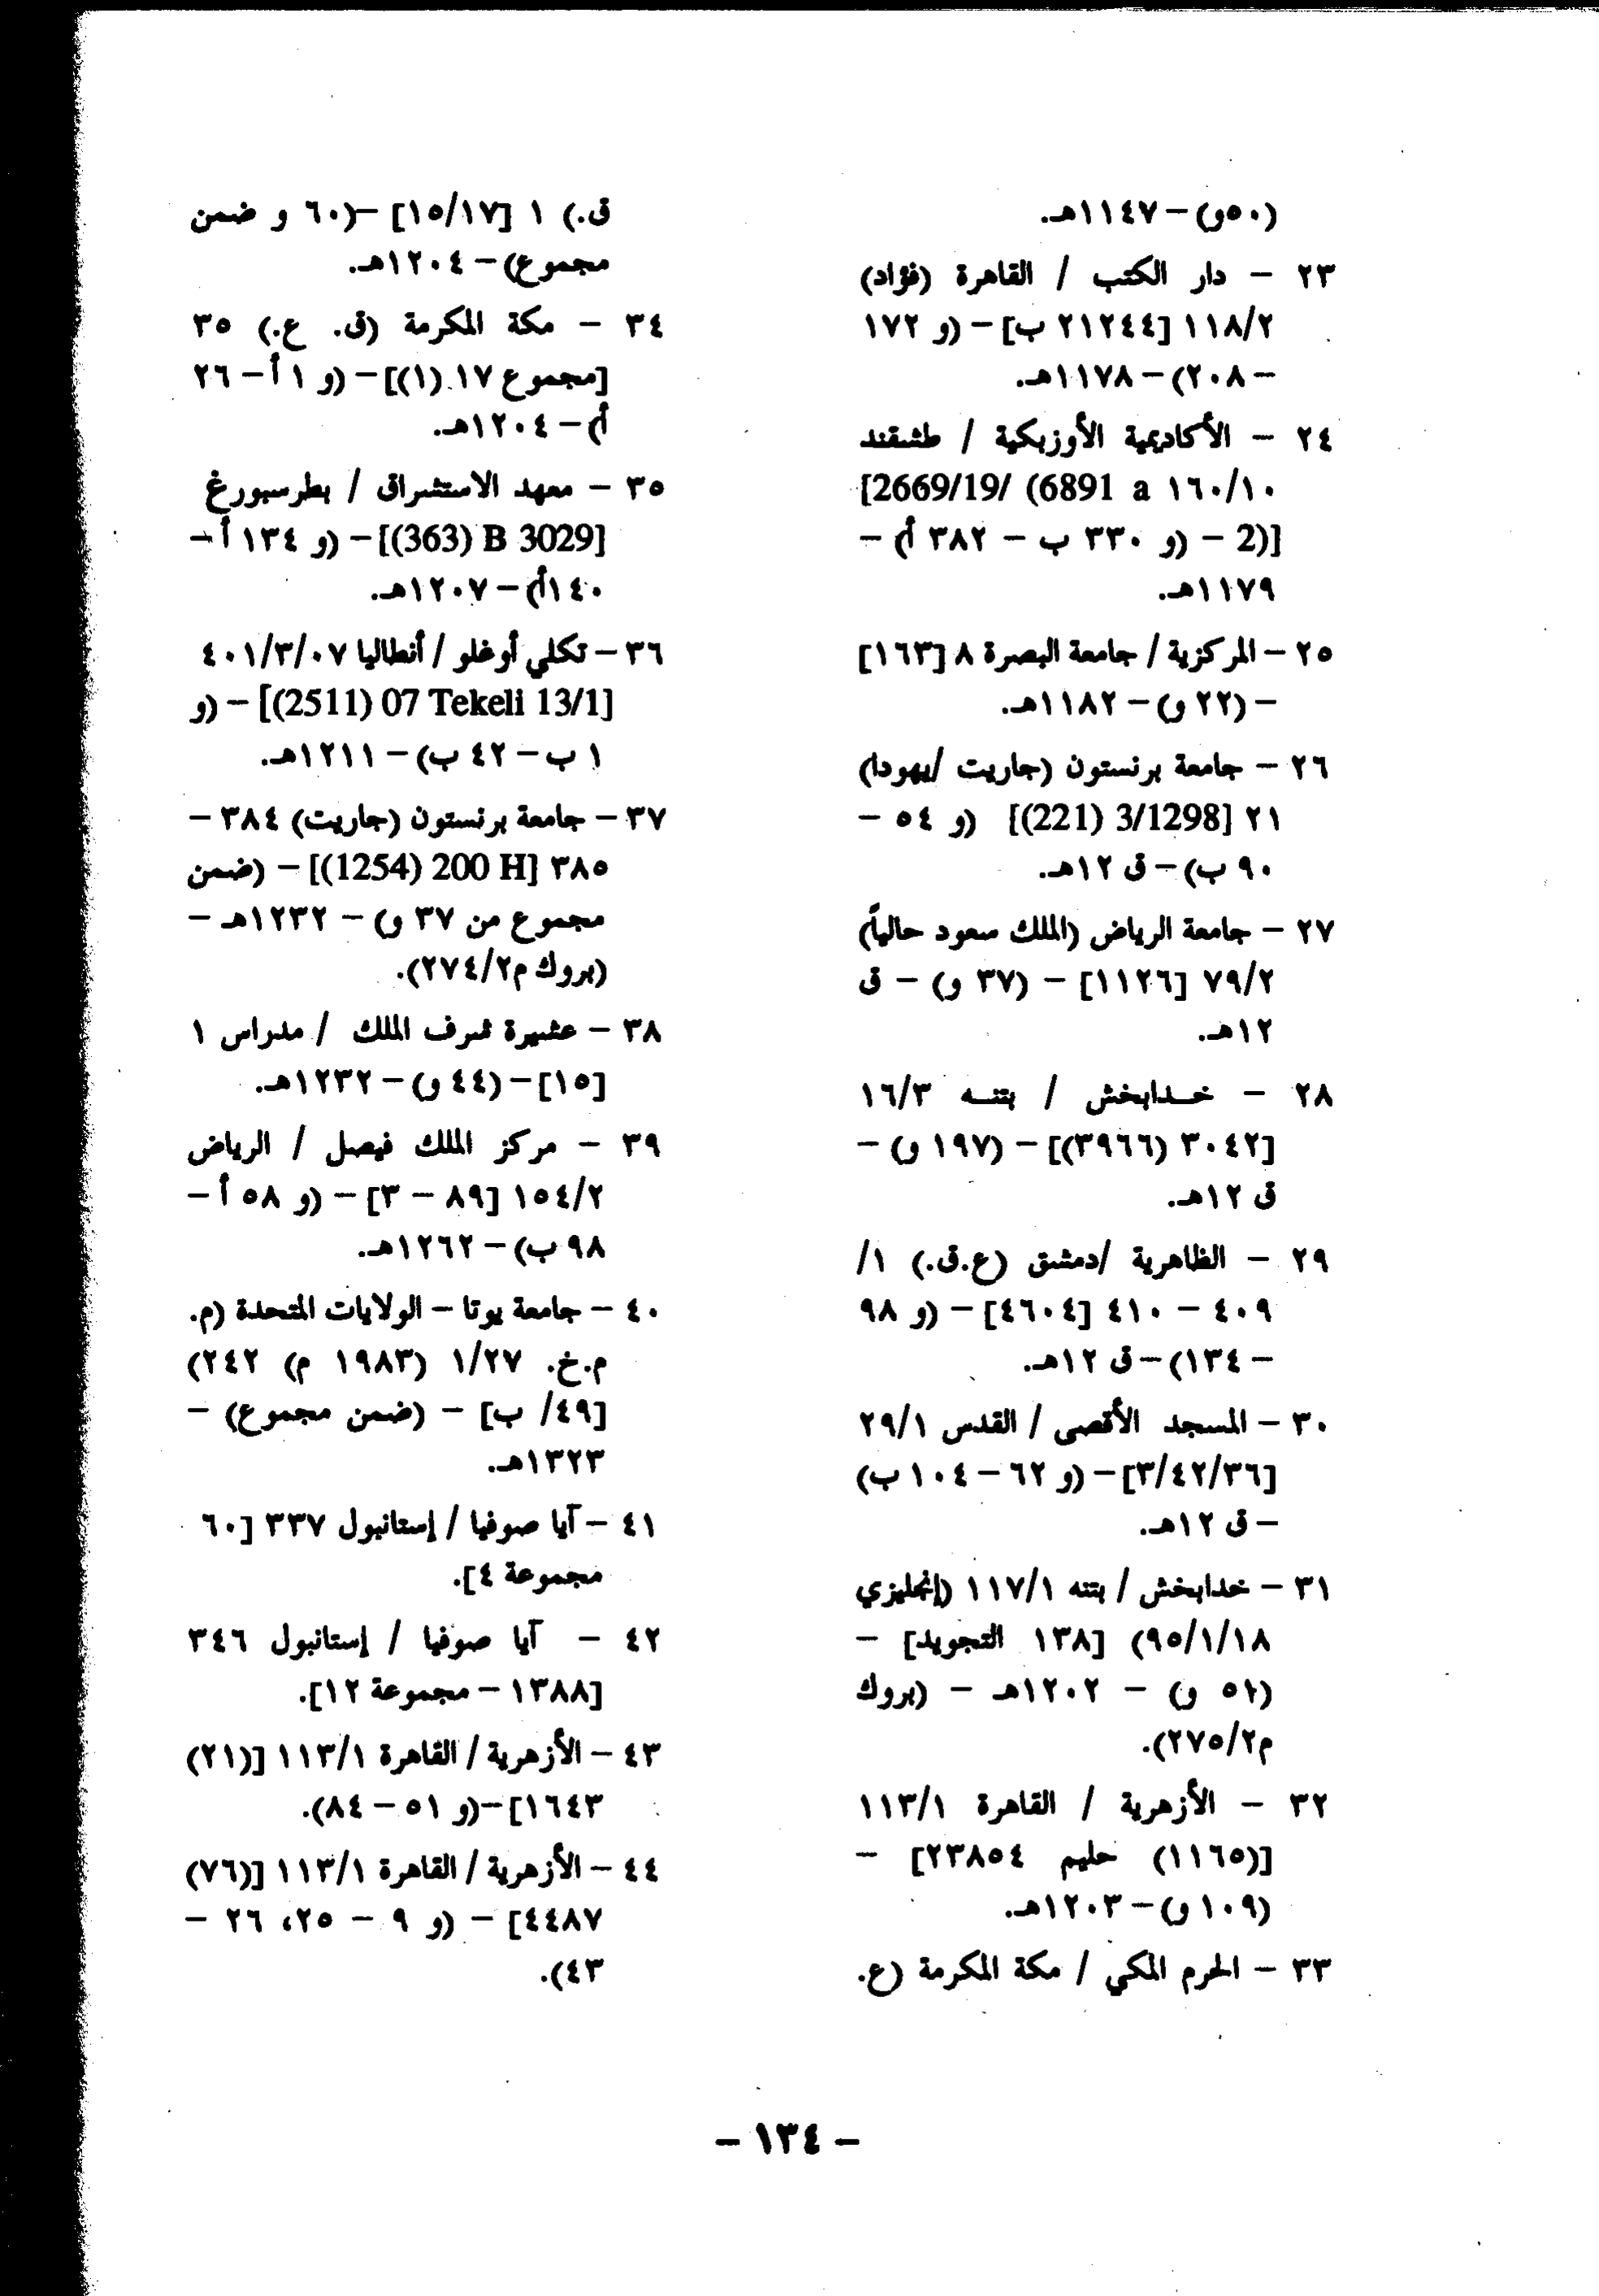 (٥٠و) – ١١٤٧هـ.
٢٣ – دار الكتب / القاهرة (فؤاد)
١١٨/٢ [٢١٢٤٤ ب] – (و ١٧٢
– ٢٠٨) – ١١٧٨هـ.
٢٤ – الأكاديمية الأوزبكية / طشقند
١٦٠/١٠ [2669/19/ (6891 a
2)] – (و ٣٣٠ ب – ٣٨٢ أ) –
١١٧٩هـ.
٢٥ – المركزية / جامعة البصرة ٨ [١٦٣]
– (٢٢ و) – ١١٨٢هـ.
٢٦ – جامعة برنستون (جاريت /يهودا)
٢١ [3/1298 (221)] (و ٥٤ –
٩٠ ب) – ق ١٢هـ.
٢٧ – جامعة الرياض (الملك سعود حالياً)
٧٩/٢ [١١٢٦] – (٣٧ و) – ق
١٢هـ.
٢٨ – خدابخش / بتنه ١٦/٣
[٣٠٤٢ (٣٩٦٦)] – (١٩٧ و) –
ق ١٢هـ.
٢٩ – الظاهرية /دمشق (ع.ق.) ١/
٤٠٩ – ٤١٠ [٤٦٠٤] – (و ٩٨
– ١٣٤) – ق ١٢هـ.
٣٠ – المسجد الأقصى / القدس ٢٩/١
[٣/٤٢/٣٦] – (و ٦٢ – ١٠٤ ب)
– ق ١٢هـ.
٣١ – خدابخش / بتنه ١١٧/١ (إنجليزي
٩٥/١/١٨) [١٣٨ التجويد] –
(٥١ و) – ١٢٠٢هـ – (بروك
م٢٧٥/٢).
٣٢ – الأزهرية / القاهرة ١١٣/١
[(١١٦٥) حليم ٢٣٨٥٤] –
(١٠٩ و) – ١٢٠٣هـ.
٣٣ – الحرم المكي / مكة المكرمة (ع.
ق.) ١ [١٥/١٧] –(٦٠ و ضمن
مجموع) – ١٢٠٤هـ.
٣٤ – مكة المكرمة (ق. ع.) ٣٥
[مجموع ١٧ (١)] – (و ١ أ – ٢٦
أ) – ١٢٠٤هـ.
٣٥ – معهد الاستشراق / بطرسبورغ
[B 3029 (363)] – (و ١٣٤ أ –
١٤٠أ) – ١٢٠٧هـ.
٣٦ – تكلي أوغلو / أنطاليا ٤٠١/٣/٠٧
[07 Tekeli 13/1 (2511)] – (و
١ ب – ٤٢ ب) – ١٢١١هـ.
٣٧ – جامعة برنستون (جاريت) ٣٨٤ –
٣٨٥ [200 H (1254)] – (ضمن
مجموع من ٣٧ و) – ١٢٣٢هـ –
(بروك م٢٧٤/٢).
٣٨ – عشيرة شرف الملك / مدراس ١
[١٥] – (٤٤ و) – ١٢٣٢هـ.
٣٩ – مركز الملك فيصل / الرياض
١٥٤/٢ [٨٩ – ٣] – (و ٥٨ أ –
٩٨ ب) – ١٢٦٢هـ.
٤٠ – جامعة يوتا – الولايات المتحدة (م.
م.خ. ١/٢٧ (١٩٨٣ م) ٢٤٢)
[٤٩/ ب] – (ضمن مجموع) –
١٣٢٣هـ.
٤١ – آيا صوفيا / إستانبول ٣٣٧ [٦٠
مجموعة ٤].
٤٢ – آيا صوفيا / إستانبول ٣٤٦
[١٣٨٨ – مجموعة ١٢].
٤٣ – الأزهرية / القاهرة ١١٣/١ [(٢١)
١٦٤٣] –(و ٥١ – ٨٤).
٤٤ – الأزهرية / القاهرة ١١٣/١ [(٧٦)
٤٤٨٧] – (و ٩ – ٢٥، ٢٦ –
٤٣).
– ١٣٤ –